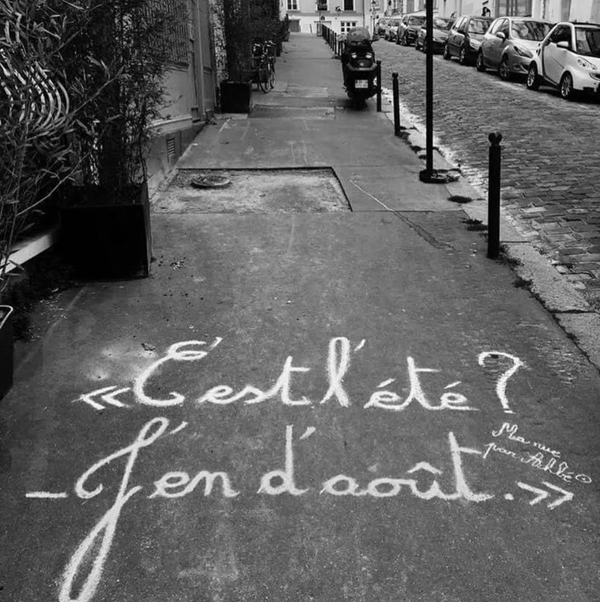 « C'est l'été ?
– J'en d'août. »
Ma rue
par Achbé